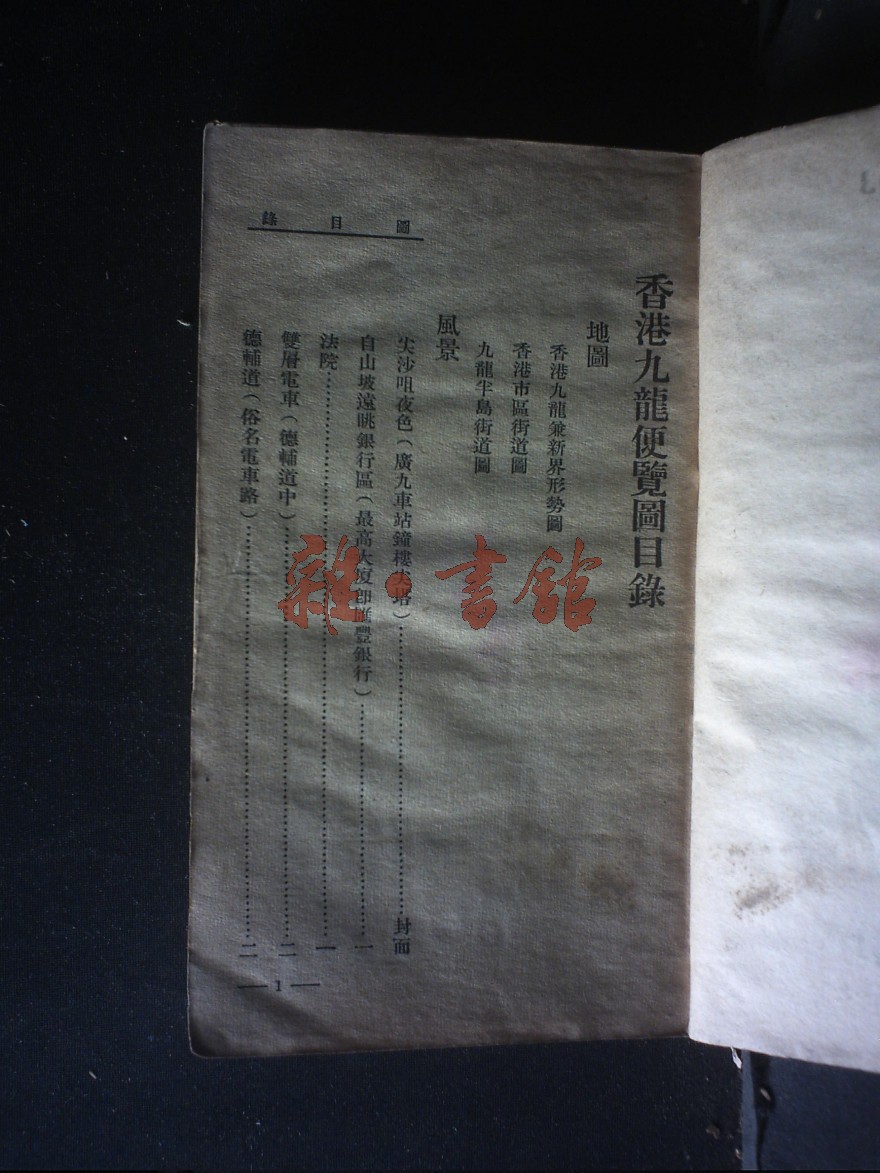 圖目錄
香港九龍便覽圖目錄
地圖
香港九龍兼新界形勢圖
香港市區街道圖
九龍半島街道圖
風景
尖沙咀夜色(廣九車站鐘樓尖塔)……封面
自山坡遠眺銀行區(最高大廈即滙豐銀行)……一
法院……一
雙層電車(德輔道中)……二
德輔道(俗名電車路)……二
—1—
雜·書館